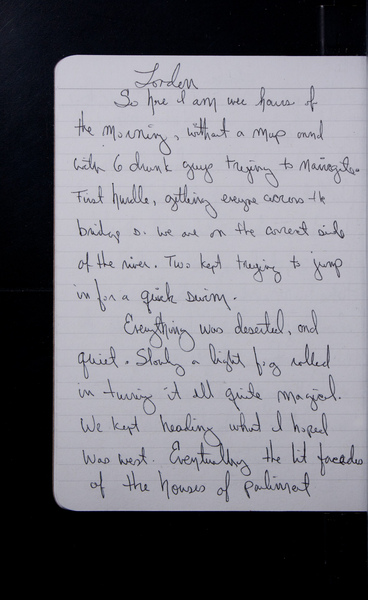 London
So here I am wee hours of
the morning, without a map and
with 6 drunk guys trying to navigate.
First hurdle, getting everyone across the
bridge so we are on the correct side
of the river. Two kept trying to jump
in for a quick swim.
Everything was deserted, and
quiet. Slowly a light fog rolled
in turning it all quite magical.
We kept heading what I hoped
was west. Eventually the lit facades
of the houses of parliment